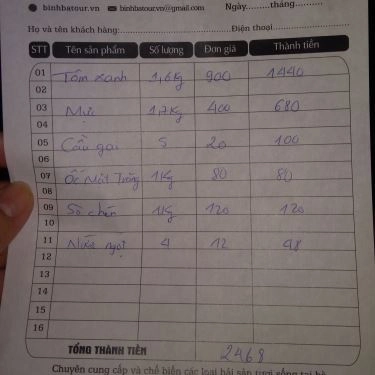 binhbatour.vn binhbatour.vn@gmail.com Ngày........tháng..........
Họ và tên khách hàng:................Điện thoại................
STT Tên sản phẩm Số lượng Đơn giá Thành tiền
01 Tôm xanh 1,6Kg 900 1440
02
03 Mực 1,7Kg 400 680
04
05 Cầu gai 5 20 100
06
07 Ốc Mặt Trăng 1Kg 80 80
08
09 Sò chén 1Kg 120 120
10
11 Nước ngọt 4 12 48
12
13
14
15
16
TỔNG THÀNH TIỀN 2468
Chuyên cung cấp và chế biến các loại hải sản tươi sống tại bè